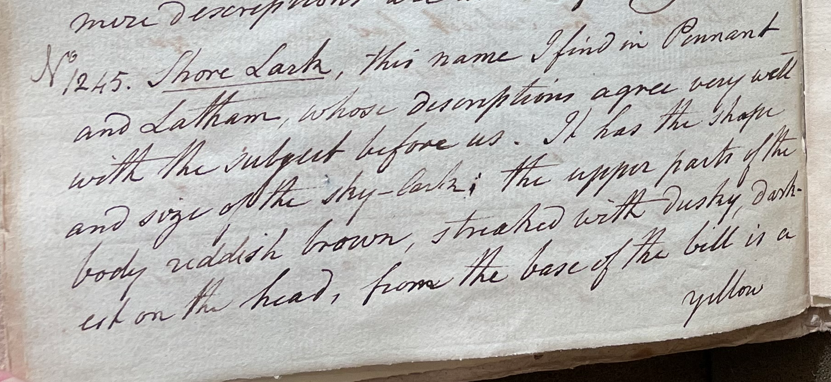 more descriptions are
No 1245. Shore Lark, this name I find in Pennant
and Latham, whose descriptions agree very well
with the subject before us. It has the shape
and size of the sky-lark; the upper parts of the
body reddish brown, streaked with dusky, dark-
est on the head, from the base of the bill is a
yellow